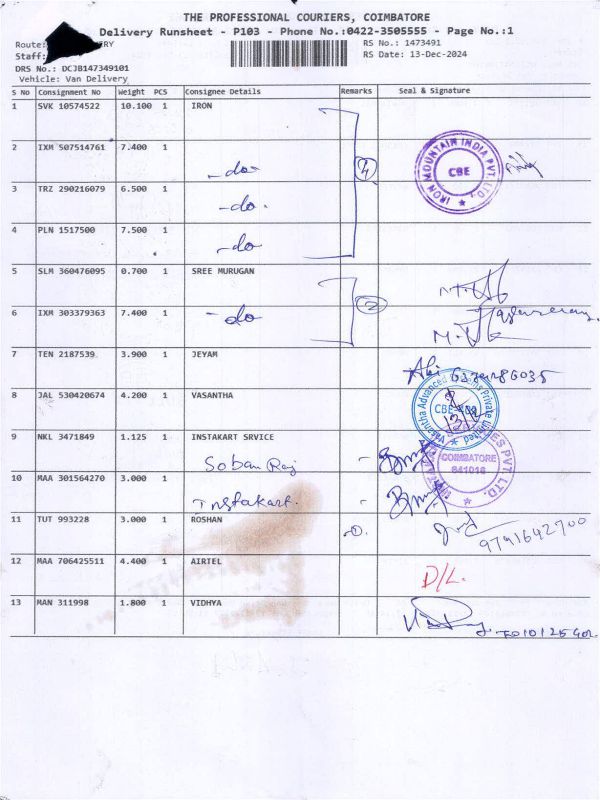 THE PROFESSIONAL COURIERS, COIMBATORE
Delivery Runsheet - P103 - Phone No.:0422-3505555 - Page No.:1
Route: RY
RS No.: 1473491
Staff:
RS Date: 13-Dec-2024
DRS No.: DCJB147349101
Vehicle: Van Delivery
S No Consignment No Weight PCS Consignee Details Remarks Seal & Signature
1 SVK 10574522 10.100 1 IRON
2 IXM 507514761 7.400 1 -do- 4
IRON MOUNTAIN INDIA PVT. LTD. CBE
3 TRZ 290216079 6.500 1 -do-
4 PLN 1517500 7.500 1 -do
5 SLM 360476095 0.700 1 SREE MURUGAN
6 IXM 303379363 7.400 1 -do 2
7 TEN 2187539 3.900 1 JEYAM
8 JAL 530420674 4.200 1 VASANTHA
Vasantha Advanced Private Limited CBE
9 NKL 3471849 1.125 1 INSTAKART SRVICE
Soban Raj
COIMBATORE 641016 PVT. LTD.
10 MAA 301564270 3.000 1
Instakart.
11 TUT 993228 3.000 1 ROSHAN
9791642700
12 MAA 706425511 4.400 1 AIRTEL D/L.
13 MAN 311998 1.800 1 VIDHYA